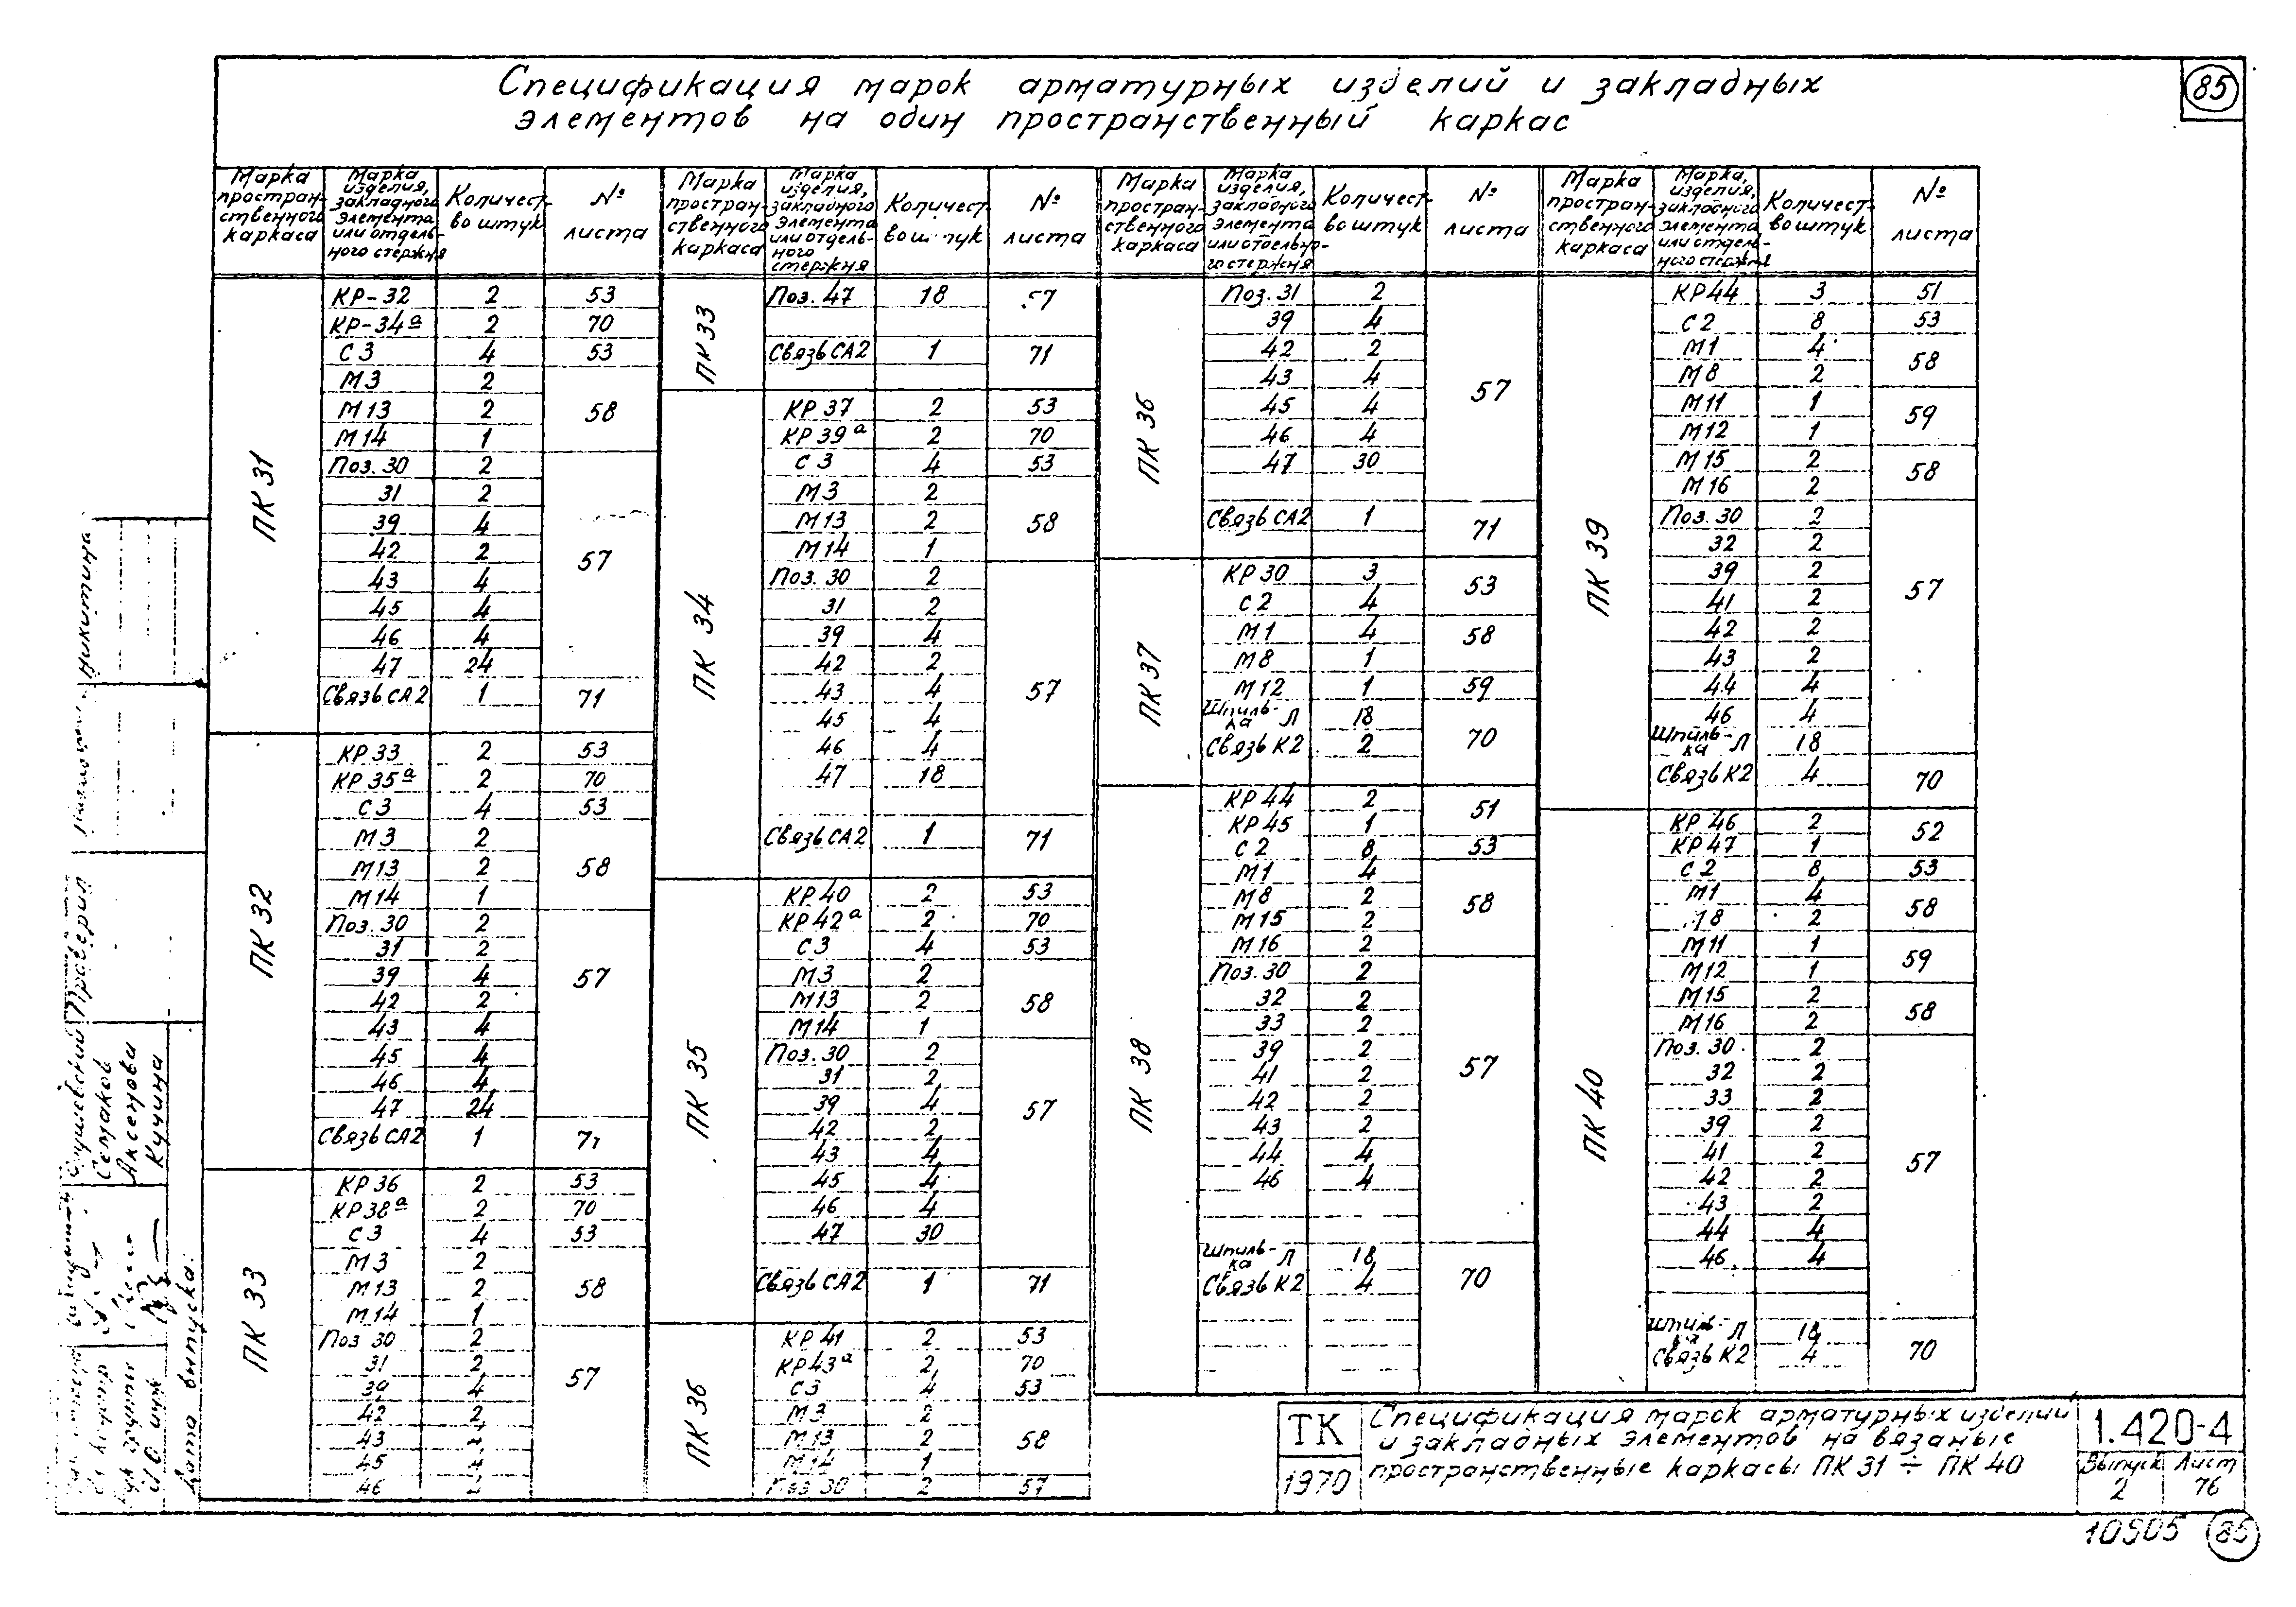 85
Спецификация марок арматурных изделий и закладных
элементов на один пространственный каркас
Марка пространственного каркаса | Марка изделия, закладного элемента или отдельного стержня | Количество штук | № листа
ПК 31
КР-32 2 53
КР-34а 2 70
С 3 4 53
М 3 2
М 13 2 58
М 14 1
Поз. 30 2
31 2
39 4
42 2 57
43 4
45 4
46 4
47 24
Связь СА2 1 71
ПК 32
КР 33 2 53
КР 35а 2 70
С 3 4 53
М 3 2
М 13 2 58
М 14 1
Поз. 30 2
31 2
39 4 57
42 2
43 4
45 4
46 4
47 24
Связь СА2 1 71
ПК 33
КР 36 2 53
КР 38а 2 70
С 3 4 53
М 3 2
М 13 2 58
М 14 1
Поз 30 2
31 2 57
39 4
42 2
43
45 4
46
Марка пространственного каркаса | Марка изделия, закладного элемента или отдельного стержня | Количество штук | № листа
ПК 33
Поз. 47 18 57
Связь СА2 1 71
ПК 34
КР 37 2 53
КР 39а 2 70
С 3 4 53
М 3 2
М 13 2 58
М 14 1
Поз. 30 2
31 2
39 4
42 2
43 4 57
45 4
46 4
47 18
Связь СА2 1 71
ПК 35
КР 40 2 53
КР 42а 2 70
С 3 4 53
М 3 2
М 13 2 58
М 14 1
Поз. 30 2
31 2
39 4 57
42 2
43 4
45 4
46 4
47 30
Связь СА2 1 71
ПК 36
КР 41 2 53
КР 43а 2 70
С 3 4 53
М 3 2
М 13 2 58
М 14 1
Поз 30 2 57
Марка пространственного каркаса | Марка изделия, закладного элемента или отдельного стержня | Количество штук | № листа
ПК 36
Поз. 31 2
39 4
42 2
43 4 57
45 4
46 4
47 30
Связь СА2 1 71
ПК 37
КР 30 3 53
С 2 4
М 1 4 58
М 8 1
М 12 1 59
Шпилька Л 18 70
Связь К2 2
ПК 38
КР 44 2 51
КР 45 1
С 2 8 53
М 1 4
М 8 2 58
М 15 2
М 16 2
Поз. 30 2
32 2
33 2
39 2
41 2 57
42 2
43 2
44 4
46 4
Шпилька Л 18 70
Связь К2 4
Марка пространственного каркаса | Марка, изделия, закладного элемента или отдельного стержня | Количество штук | № листа
ПК 39
КР 44 3 51
С 2 8 53
М 1 4 58
М 8 2
М 11 1 59
М 12 1
М 15 2 58
М 16 2
Поз. 30 2
32 2
39 2
41 2 57
42 2
43 2
44 4
46 4
Шпилька Л 18
Связь К2 4 70
ПК 40
КР 46 2 52
КР 47 1
С 2 8 53
М 1 4 58
8 2
М 11 1 59
М 12 1
М 15 2 58
М 16 2
Поз. 30 2
32 2
33 2
39 2
41 2 57
42 2
43 2
44 4
46 4
Шпилька Л 18 70
Связь К2 4
ТК
1970
Спецификация марок арматурных изделий
и закладных элементов на вязаные
пространственные каркасы ПК 31 ÷ ПК 40
1.420-4
Выпуск 2
Лист 76
10505 85
Никитина
Проверил
Семаков
Аксенова
Кучина
Дата выпуска: